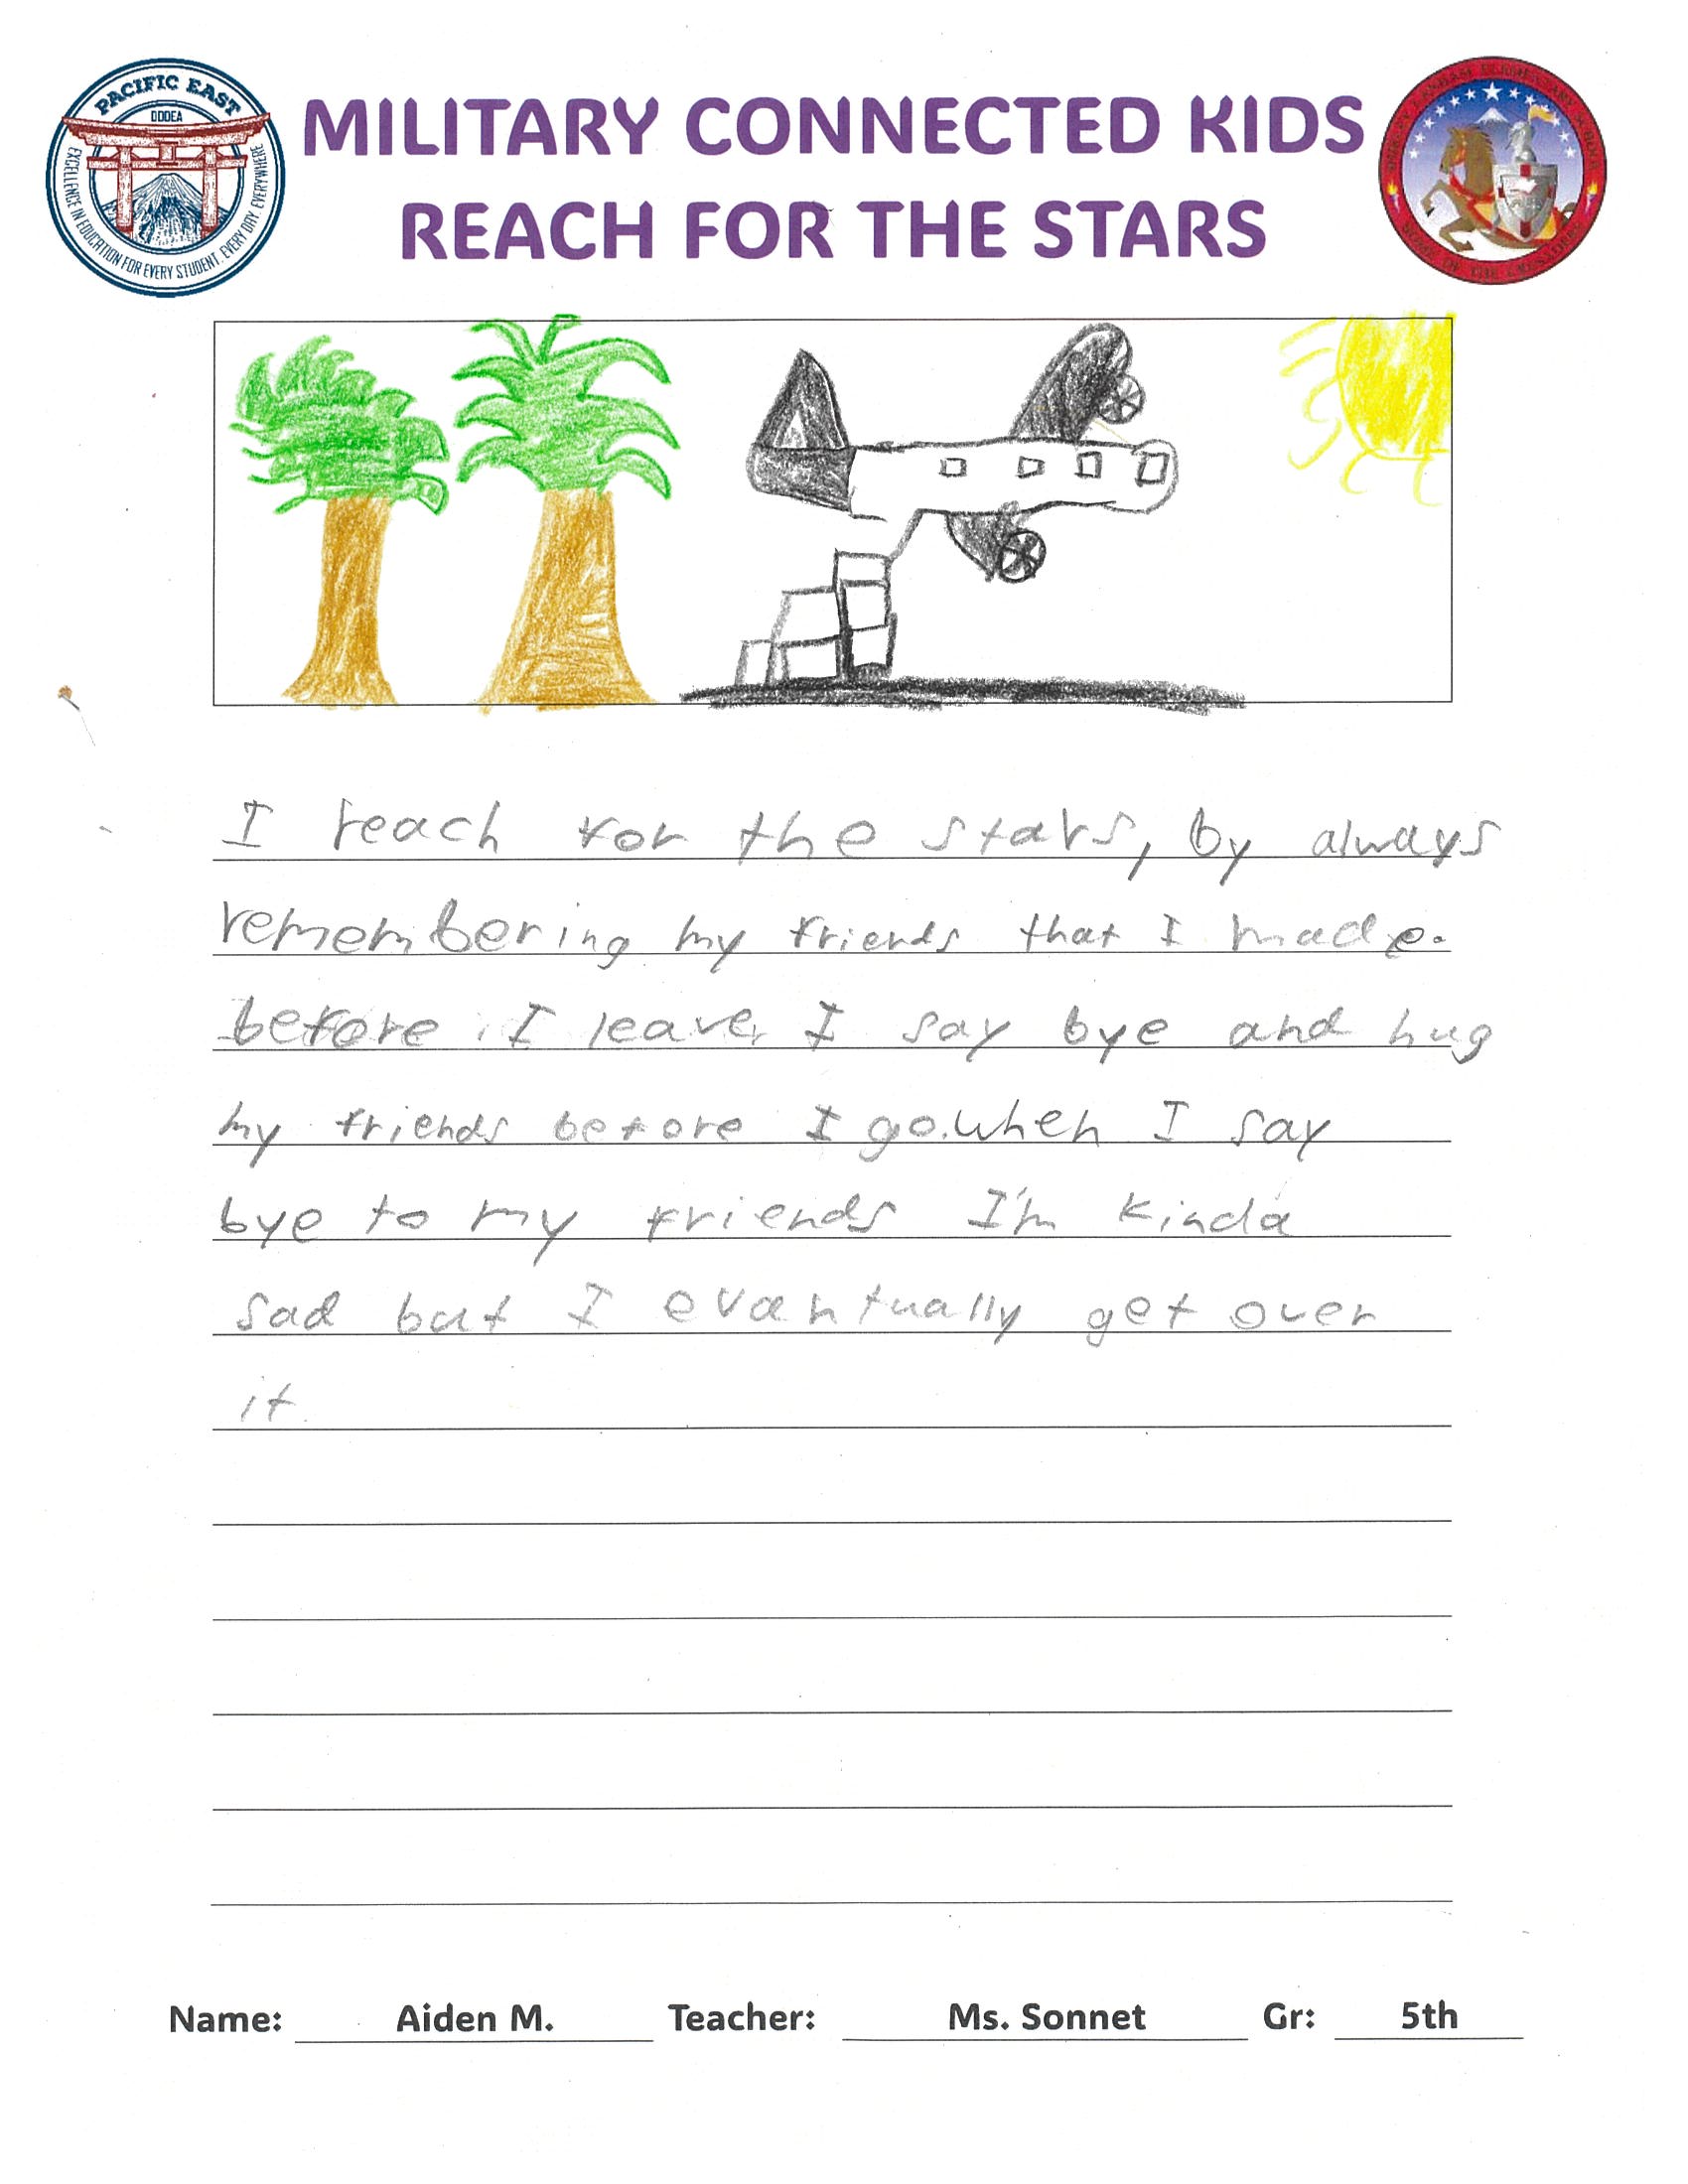 PACIFIC EAST
DODEA
EXCELLENCE IN EDUCATION FOR EVERY STUDENT, EVERY DAY, EVERYWHERE
MILITARY CONNECTED KIDS
REACH FOR THE STARS
I reach for the stars, by always
remembering my friends that I made.
before I leave, I say bye and hug
my friends before I go. when I say
bye to my friends I'm kinda
sad but I evantually get over
it.
Name: Aiden M. Teacher: Ms. Sonnet Gr: 5th